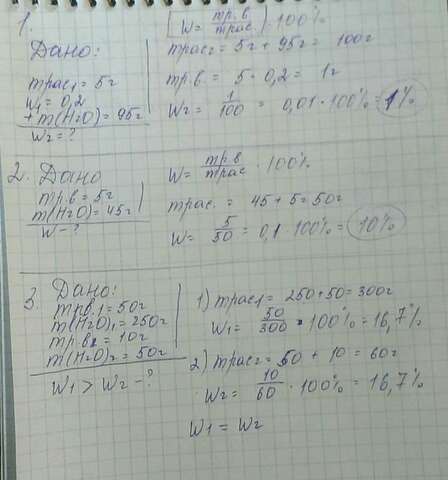 1.
[w = mр.в / mрас] · 100%
Дано:
mрас2 = 5г + 95г = 100г
mрас1 = 5г
w1 = 0,2
+m(H2O) = 95г
w2 = ?
mр.в = 5 · 0,2 = 1г
w2 = 1/100 = 0,01 · 100% = 1%
2. Дано
mр.в = 5г
m(H2O) = 45г
w - ?
w = mр.в / mрас · 100%
mрас. = 45 + 5 = 50г
w = 5/50 = 0,1 · 100% = 10%
3. Дано:
mр.в.1 = 50г
m(H2O)1 = 250г
mр.в2 = 10г
m(H2O)2 = 50г
w1 > w2 - ?
1) mрас1 = 250 + 50 = 300г
w1 = 50/300 · 100% = 16,7%
2) mрас2 = 50 + 10 = 60г
w2 = 10/60 · 100% = 16,7%
w1 = w2